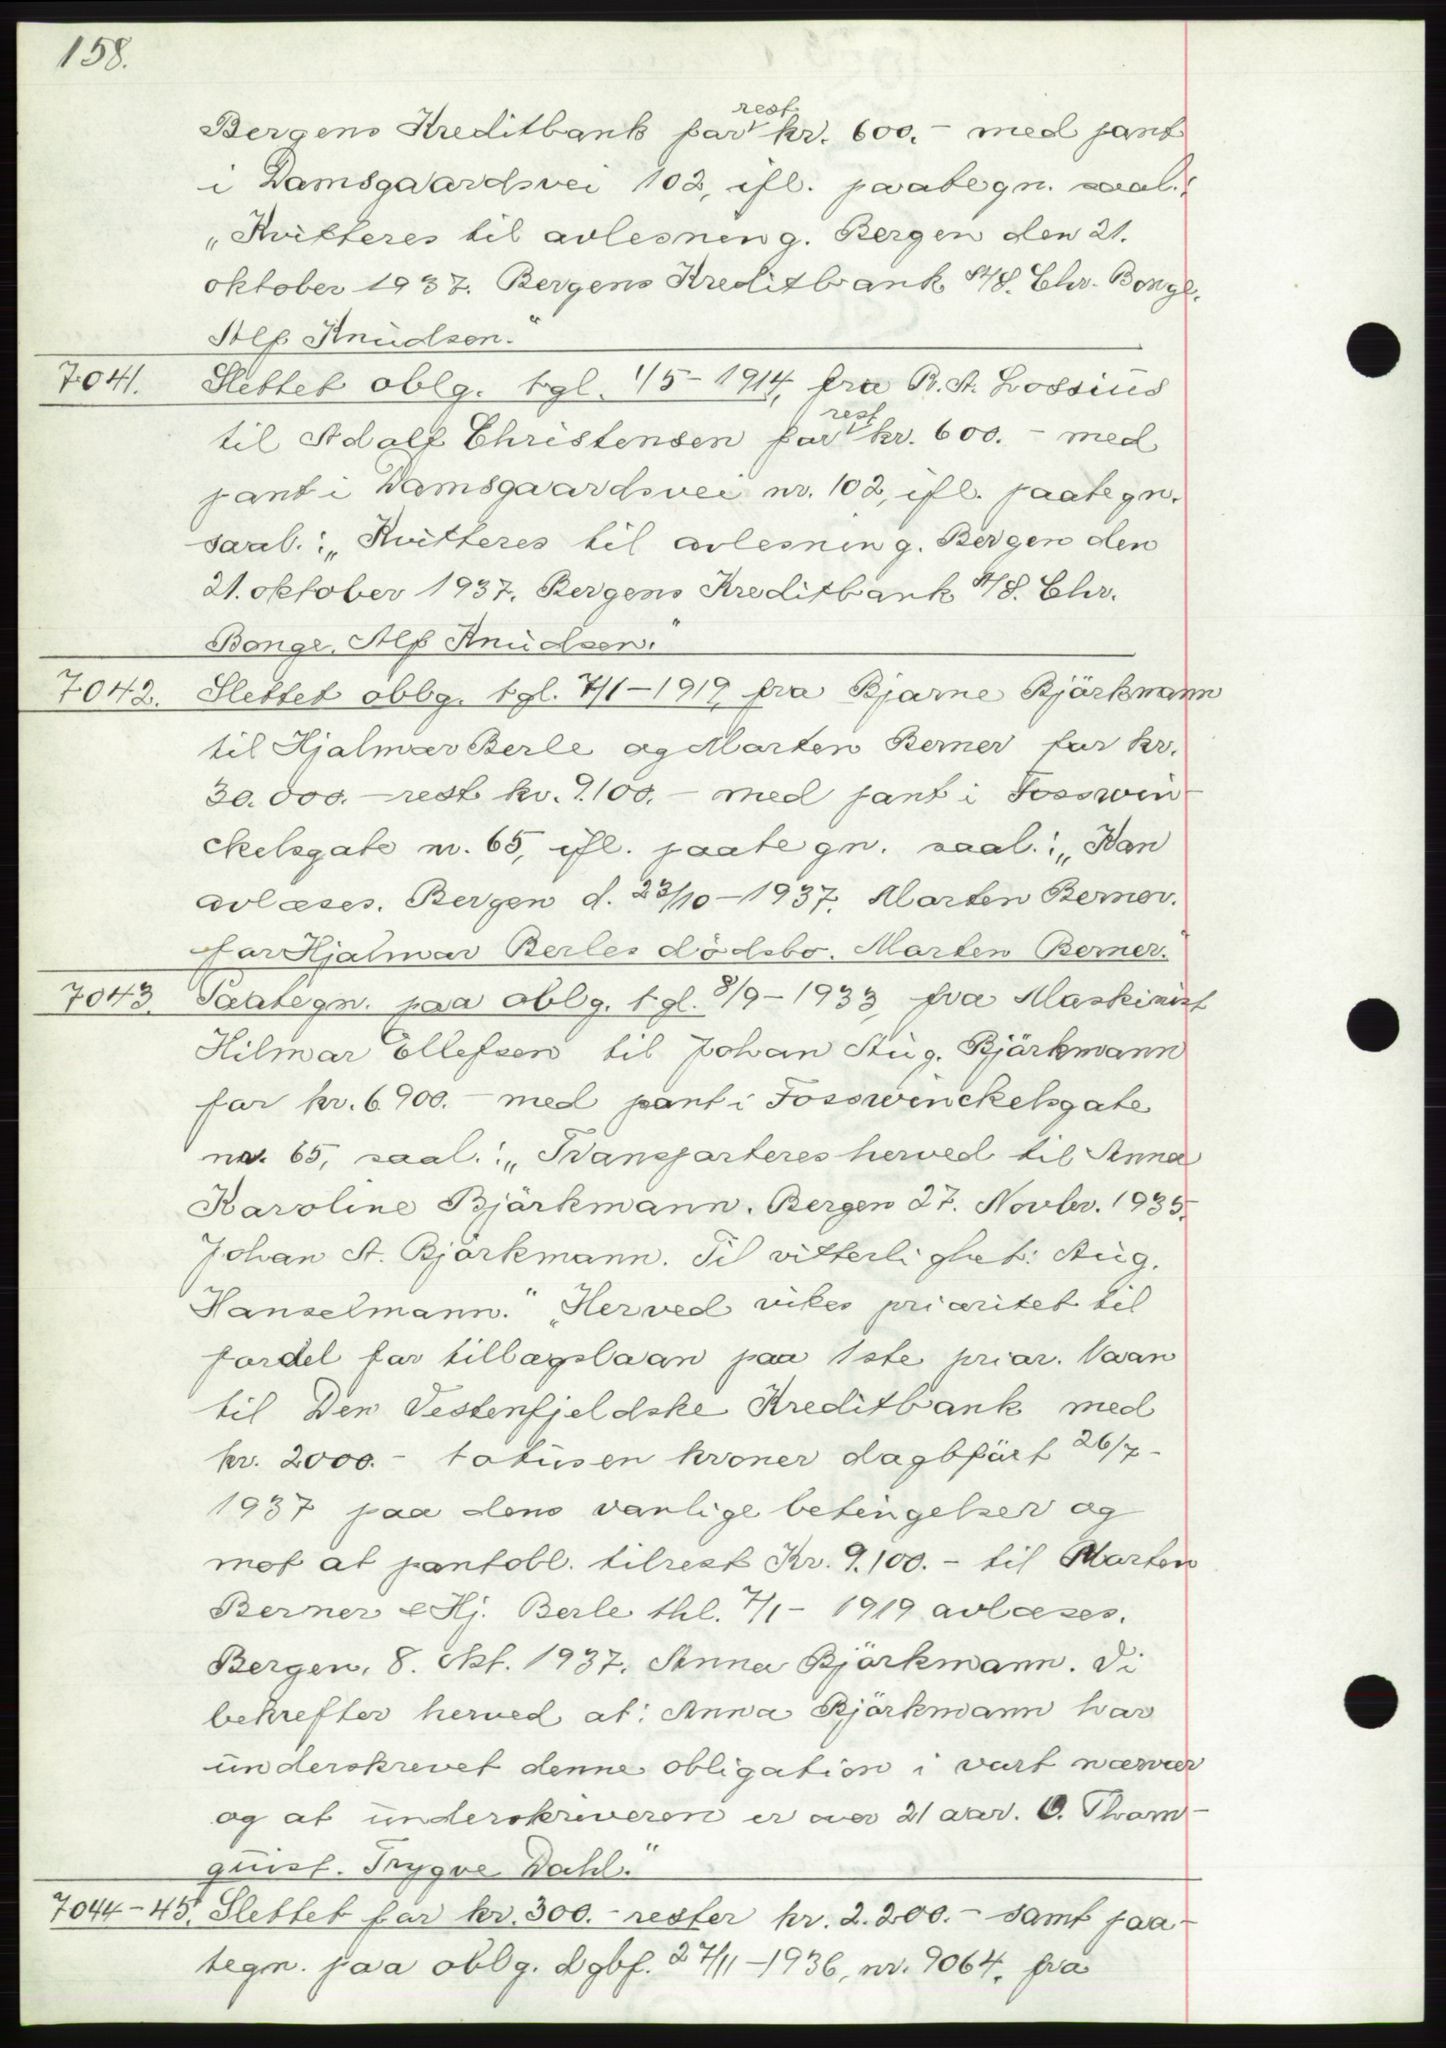 158.
Bergens Kreditbank for rest kr. 600.- med pant
i Damsgaardsvei 102, ifl. paategn. saal.:
„Kvitteres til avlesning. Bergen den 21.
oktober 1937. Bergens Kreditbank A/S. Chr. Bonge.
Alf Knudsen."
7041. Slettet oblg. tgl. 1/5-1914, fra R. A. Lossius
til Adolf Christensen for rest kr. 600.- med
pant i Damsgaardsvei nr. 102, ifl. paategn.
saal.: „Kvitteres til avlesning. Bergen den
21. oktober 1937. Bergens Kreditbank A/S. Chr.
Bonge. Alf Knudsen."
7042. Slettet oblg. tgl. 7/1-1919, fra Bjarne Björkmann
til Hjalmar Berle og Morten Berner for kr.
30.000.- rest kr. 9.100.- med pant i Fosswin-
ckelsgate nr. 65, ifl. paategn. saal.: „Kan
avlæses. Bergen d. 23/10-1937. Morten Berner.
for Hjalmar Berles dödsbo. Morten Berner."
7043. Paategn. paa oblg. tgl. 8/9-1933, fra Maskinist
Hilmar Ellefsen til Johan Aug. Björkmann
for kr. 6.900.- med pant i Fosswinckelsgate
nr. 65, saal.: „Transporteres herved til Anna
Karoline Björkmann. Bergen 27. Novbr. 1935.
Johan A. Björkmann. Til vitterlighet: Aug.
Hanselmann." „Herved vikes prioritet til
fordel for tillægslaan paa 1ste prior. laan
til Den Vestenfjeldske Kreditbank med
kr. 2000.- totusen kroner dagbfört 26/7-
1937 paa dens vanlige betingelser og
mot at pantobl. tilrest Kr. 9.100.- til Morten
Berner & Hj. Berle thl. 7/1- 1919 avlæses.
Bergen, 8. okt. 1937. Anna Björkmann. Vi
bekrefter herved at: Anna Björkmann har
underskrevet denne obligation i vort nærvær
og at underskriveren er over 21 aar. O. Thorn-
quist. Trygve Dahl."
7044-45. Slettet for kr. 300.- rester kr. 2.200.- samt paa-
tegn. paa oblg. dgbf. 27/11-1936, nr. 9064, fra